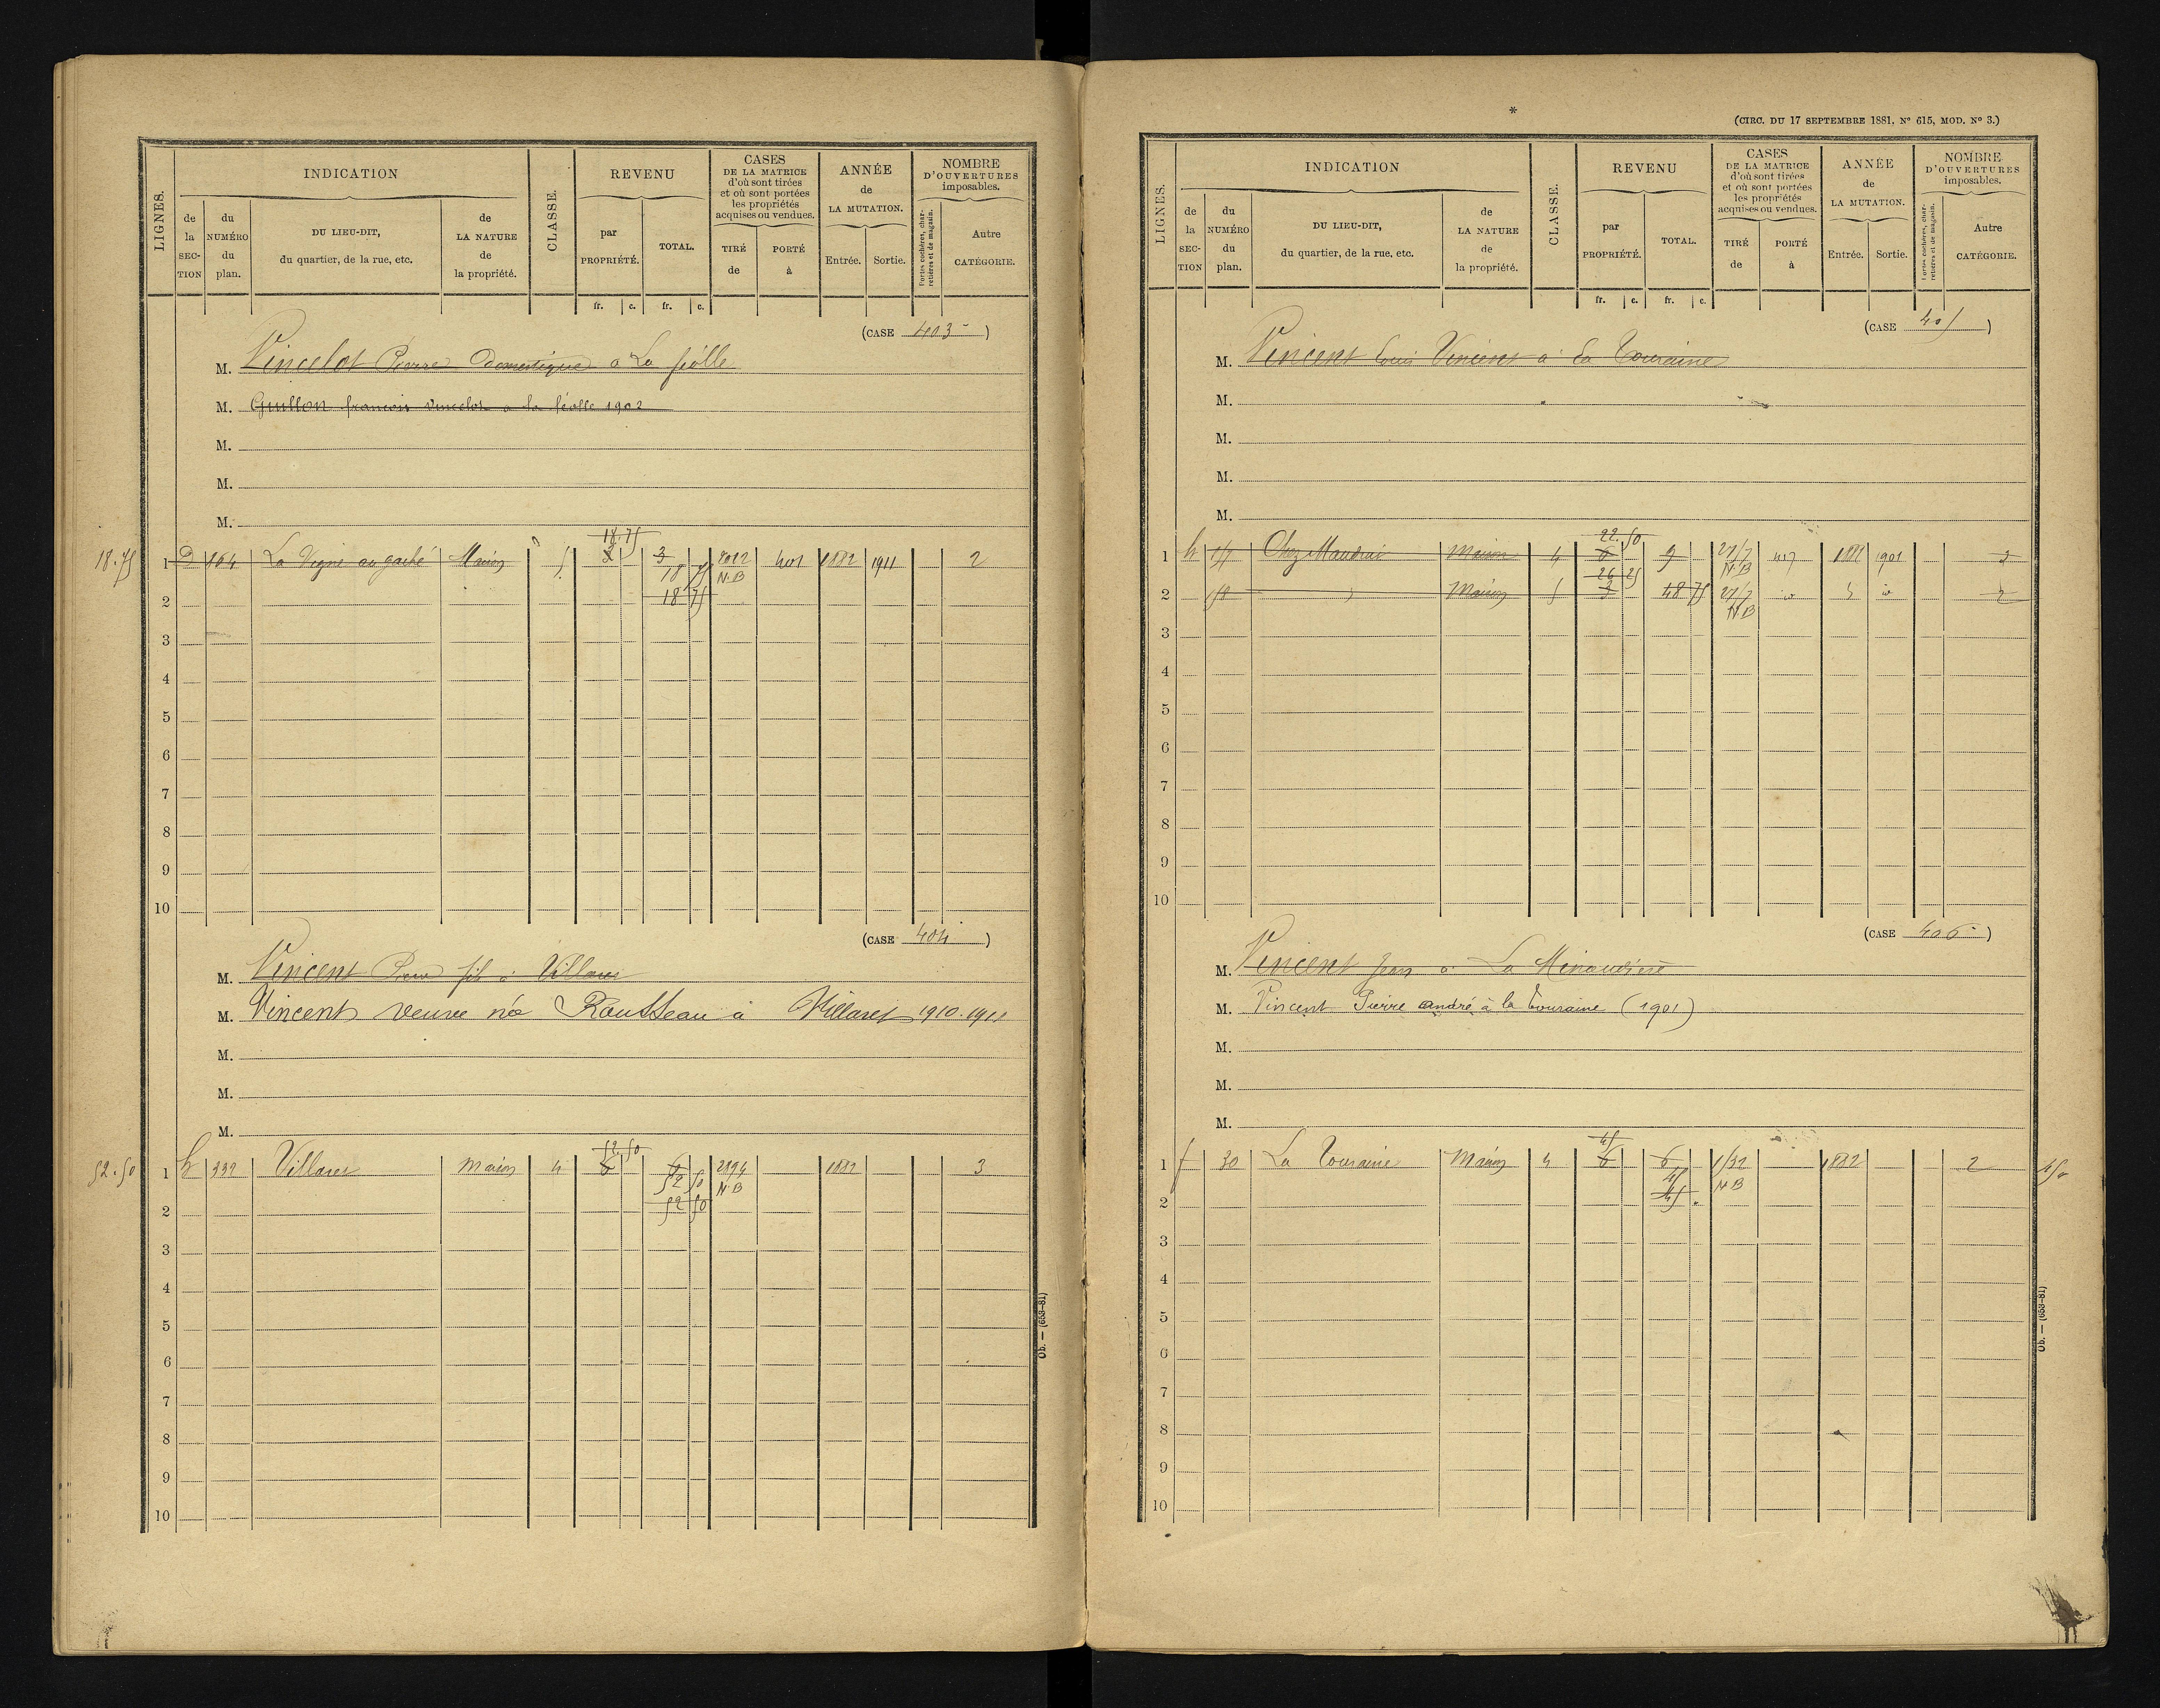 LIGNES.
INDICATION
de la SECTION
du NUMÉRO du plan.
DU LIEU-DIT, du quartier, de la rue, etc.
de LA NATURE de la propriété.
CLASSE.
REVENU
par PROPRIÉTÉ.
TOTAL.
fr. c. fr. c.
CASES DE LA MATRICE d'où sont tirées et où sont portées les propriétés acquises ou vendues.
TIRÉ de
PORTÉ à
ANNÉE de LA MUTATION.
Entrée. Sortie.
NOMBRE D'OUVERTURES imposables.
Portes cochères, charretières et de magasin.
Autre CATÉGORIE.
(CASE 403)
M. Vincelot Pierre Domestique a La féolle
M. Guillon françois Vincelot a la féolle 1902
M.
M.
M.
18.75
18.75
1 D 164 La Vigne au gaché Maison 5 3 3 2012 401 1882 1911 2
18 75 N.B
2 18 75
3
4
5
6
7
8
9
10
(CASE 404)
M. Vincent Pierre fils à Villaret
M. Vincent veuve née Rousseau à Villaret 1910.1911
M.
M.
M.
52.50
52.50
1 h 332 Villaret Maison 4 6 6 2194 1882 3
52 50 N.B
2 52 50
3
4
5
6
7
8
9
10
Ob. — (653-81)
*
(CIRC. DU 17 SEPTEMBRE 1881, Nº 615, MOD. Nº 3.)
LIGNES.
INDICATION
de la SECTION
du NUMÉRO du plan.
DU LIEU-DIT, du quartier, de la rue, etc.
de LA NATURE de la propriété.
CLASSE.
REVENU
par PROPRIÉTÉ.
TOTAL.
fr. c. fr. c.
CASES DE LA MATRICE d'où sont tirées et où sont portées les propriétés acquises ou vendues.
TIRÉ de
PORTÉ à
ANNÉE de LA MUTATION.
Entrée. Sortie.
NOMBRE D'OUVERTURES imposables.
Portes cochères, charretières et de magasin.
Autre CATÉGORIE.
(CASE 405)
M. Vincent Louis Vincent à La Touraine
M.
M.
M.
M.
22.50
1 h 157 Maison 4 6 9 417 1882 1901 2
N.B
26 25
2 158 Maison 5 3 48 75 2
N.B
3
4
5
6
7
8
9
10
(CASE 406)
M. Vincent Jean a La Minaudière
M. Vincent Pierre andré à la Touraine (1901)
M.
M.
M.
45
1 f 30 La Touraine Maison 4 6 6 1532 1882 2
45 N.B
2 45
3
4
5
6
7
8
9
10
Ob. — (653-81)